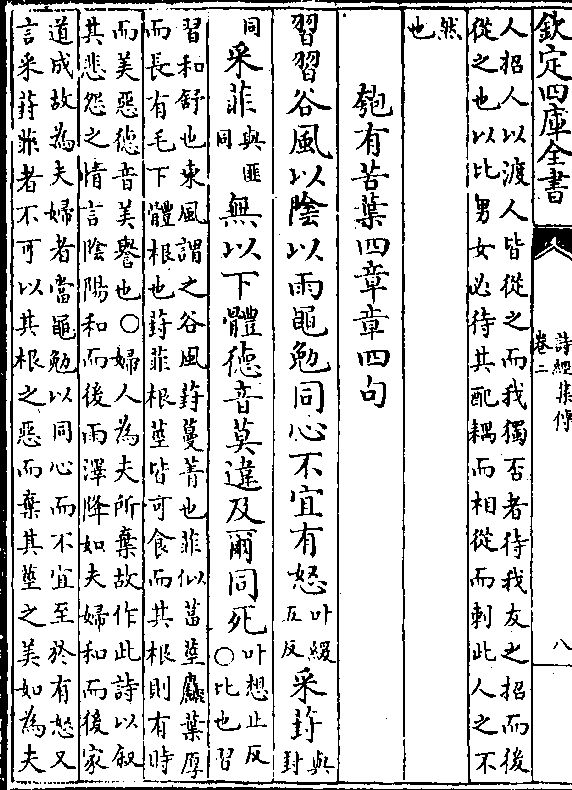 欽定四庫全書
詩經集傳
卷二
八
人招人以渡人皆從之而我獨否者待我友之招而後
從之也以比男女必待其配耦而相從而刺此人之不
然
也
匏有苦葉四章章四句
習習谷風以陰以雨黽勉同心不宜有怒叶緩五反采葑與對
同采菲與匪同無以下體德音莫違及爾同死叶想止反○比也習
習和舒也東風謂之谷風葑蔓菁也菲似葍莖麤葉厚
而長有毛下體根也葑菲根莖皆可食而其根則有時
而美惡德音美譽也○婦人為夫所棄故作此詩以叙
其悲怨之情言陰陽和而後雨澤降如夫婦和而後家
道成故為夫婦者當黽勉以同心而不宜至於有怒又
言采葑菲者不可以其根之惡而棄其莖之美如為夫